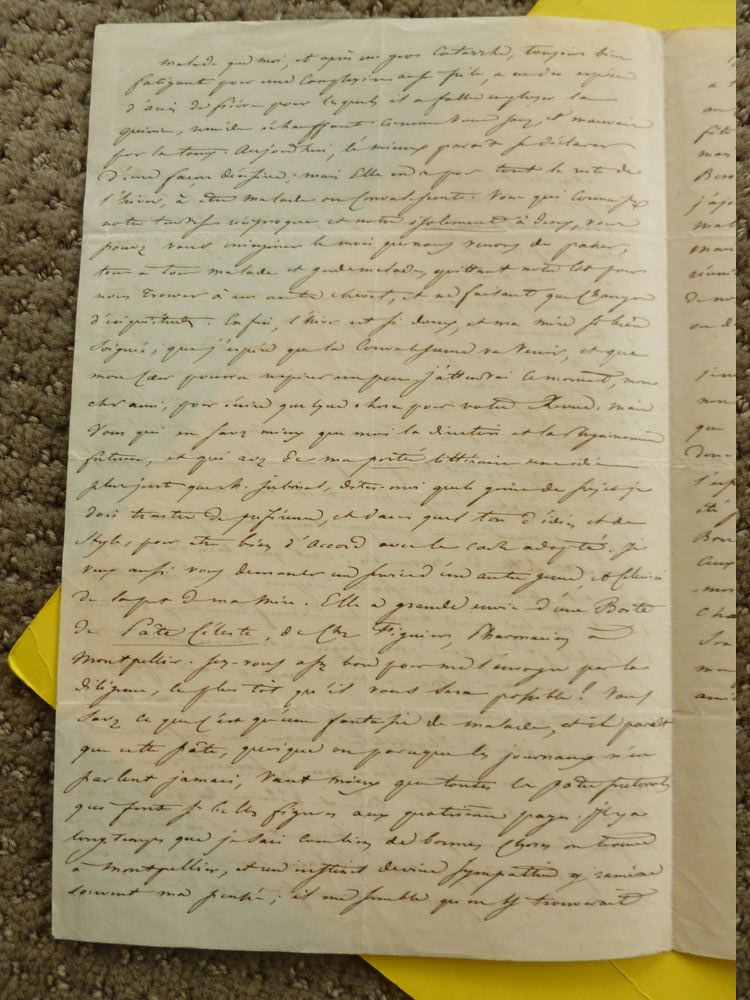 malade que moi, et après un gros catarrhe, toujours bien
fatigant pour une complexion aussi frêle, a eu des espèces
d'accès de fièvre pour lesquels il a fallu employer la
quinine, remède échauffant comme vous savez, et mauvais
pour la toux. Aujourd'hui, le mieux paraît se déclarer
d'une façon décisive; mais Elle en a pour tout le reste de
l'hiver, à être malade ou convalescente. Vous qui connaissez
notre tendresse réciproque et notre isolement à deux, vous
pouvez vous imaginer le mois que nous venons de passer,
tour à tour malade et gardemalade, quittant notre lit pour
nous trouver à un autre chevet, et ne faisant que changer
d'inquiétudes. Enfin, l'hiver est si doux, et ma mère si bien
soignée, que j'espère que la convalescence va venir, et que
mon cœur pourra respirer un peu. J'attendrai ce moment, mon
cher ami, pour écrire quelque chose pour votre Revue, mais
Vous qui en savez mieux que moi la direction et la Physionomie
future, et qui avez de ma portée littéraire une idée
plus juste que M. Jubinal, dites-moi quel genre de sujet je
dois traiter de préférence, et dans quel ton d'idées et de
style, pour être bien d'accord avec le cadre adopté. Je
veux aussi vous demander un service d'un autre genre, et celui-ci
de la part de ma Mère. Elle a grande envie d'une Boîte
de Pâte Céleste, de chez Figuier, Pharmacien à
Montpellier. Soyez-vous assez bon pour me l'envoyer par la
diligence, le plus tôt qu'il vous sera possible! Vous
savez ce que c'est qu'une fantaisie de malade, et il paraît
que cette pâte, quoique ou parceque les journaux n'en
parlent jamais, vaut mieux que toutes les pâtes pectorales
qui font si belles figures aux quatrièmes pages. Il y a
longtemps que je sais combien de bonnes choses on trouve
à Montpellier, et un instinct de vive sympathie y ramène
souvent ma pensée; il me semble qu'on y trouverait